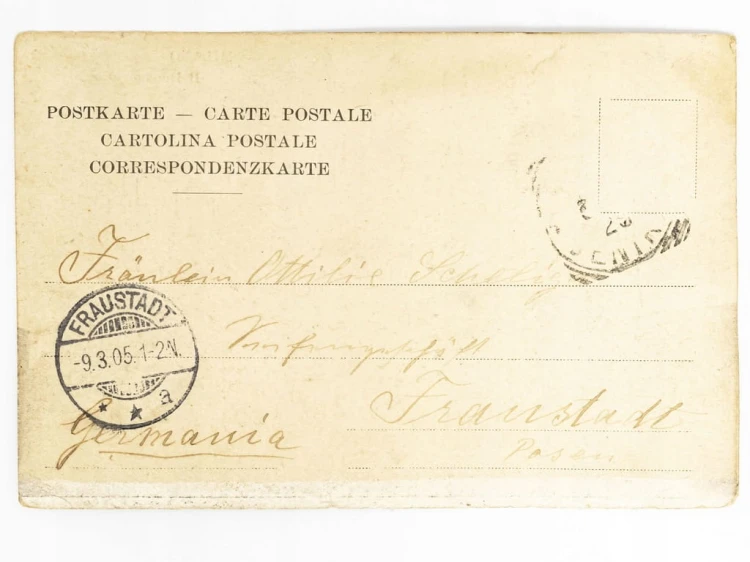 POSTKARTE — CARTE POSTALE
CARTOLINA POSTALE
CORRESPONDENZKARTE
Fräulein Ottilie
FRAUSTADT
-9.3.05.1-2N.
* * a
Fraustadt
Germania
Posen